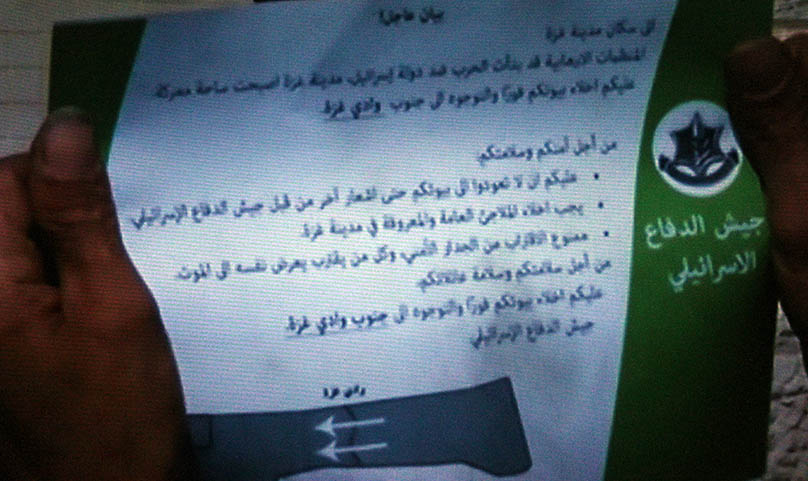 بيان عاجل!
الى سكان مدينة غزة
المنظمات الارهابية قد بدأت الحرب ضد دولة إسرائيل، مدينة غزة اصبحت ساحة معركة.
عليكم اخلاء بيوتكم فورًا والتوجوه الى جنوب وادي غزة.
من أجل أمنكم وسلامتكم:
• عليكم ان لا تعودوا الى بيوتكم حتى اشعار آخر من قبل جيش الدفاع الإسرائيلي.
• يجب اخلاء الملاجئ العامة والمعروفة في مدينة غزة.
• ممنوع الاقتراب من الجدار الأمني، وكل من يقترب يعرض نفسه الى الموت.
من أجل سلامتكم وسلامة عائلاتكم.
عليكم اخلاء بيوتكم فورًا والتوجوه الى جنوب وادي غزة.
جيش الدفاع الإسرائيلي
وادي غزة
جيش الدفاع
الاسرائيلي